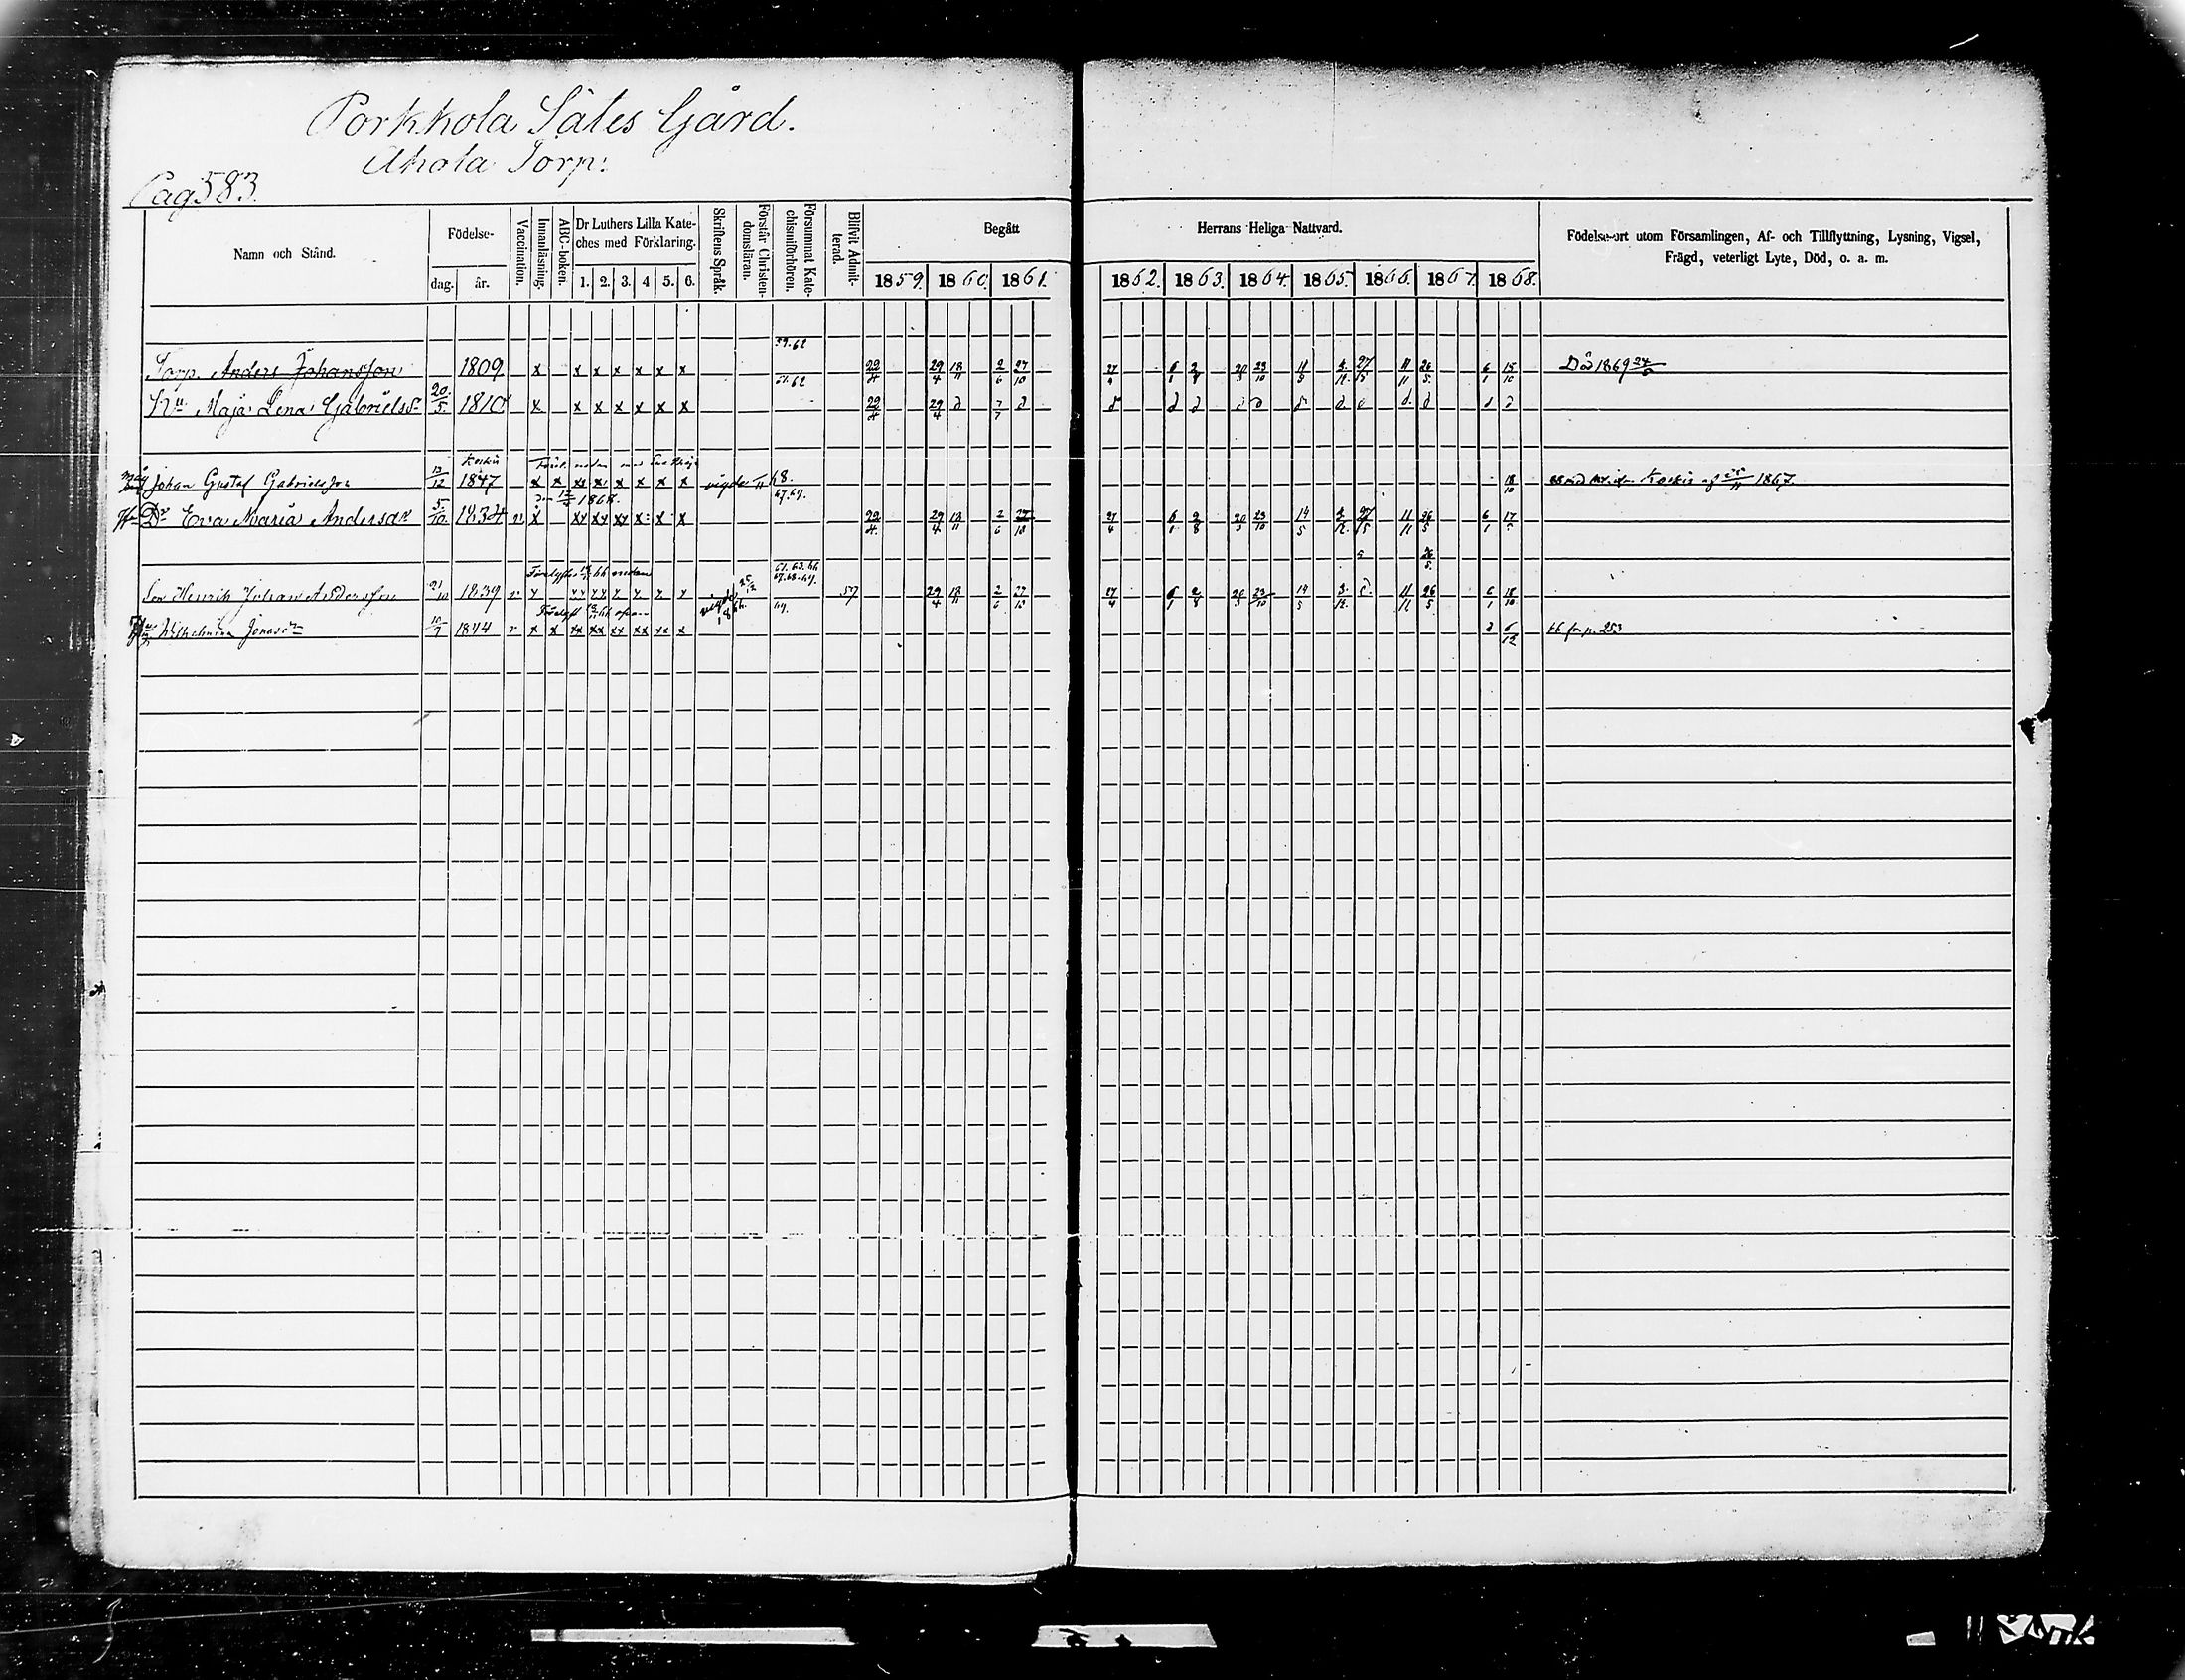 Porkkola Sätes Gård.
Ahola Torp:
Pag 583.
Namn och Stånd.
Födelse-
dag. år.
Vaccination.
Innanläsning.
ABC-boken.
Dr Luthers Lilla Kate-
ches med Förklaring.
1. 2. 3. 4 5. 6.
Skriftens Språk.
Förstår Christen-
domsläran.
Försummat Kate-
chismiförhören.
Blifvit Admit-
terad.
Begått
1859. 1860. 1861.
Herrans Heliga Nattvard.
1862. 1863. 1864. 1865. 1866. 1867. 1868.
Födelse-ort utom Församlingen, Af- och Tillflyttning, Lysning, Vigsel,
Frägd, veterligt Lyte, Död, o. a. m.
59. 62
Torp. Anders Johansson 1809 x x x x x x x 22/4 29/4 18/11 2/6 27/10 27/4 6/1 2/8 20/3 23/10 11/5 3/12 27/5 11/11 26/5 6/1 15/10 Dö 1869 24/5
61. 62
Hu Maja Lena Gabrielsd 20/5 1810 x x x x x x x 22/4 29/4 d 7/7 d
Koskis
måg Johan Gustaf Gabrielsson 13/12 1847 x x x x x x x x vigde 68. 18/10 Koskis 1867.
1868. 67.69.
Hu Dr Eva Maria Andersdr 5/10 1834 v x xx xx xy x x x 22/4 29/4 18/11 2/6 27/10 27/4 6/1 2/8 20/3 23/10 14/5 3/12 27/5 11/11 26/5 6/1 17/5
26/5
61. 63. 66
67.68.69.
Son Henrik Johan Andersson 21/10 1839 v 57 29/4 18/11 2/6 27/10 27/4 6/1 2/8 20/3 23/10 14/5 3/12 d 11/11 26/5 6/1 18/10
vigde 1866. 69.
Wilhelmina Jonasdr 10/7 1844 v x x xx xx xx xx xx x d 6/12 66 fr p. 253